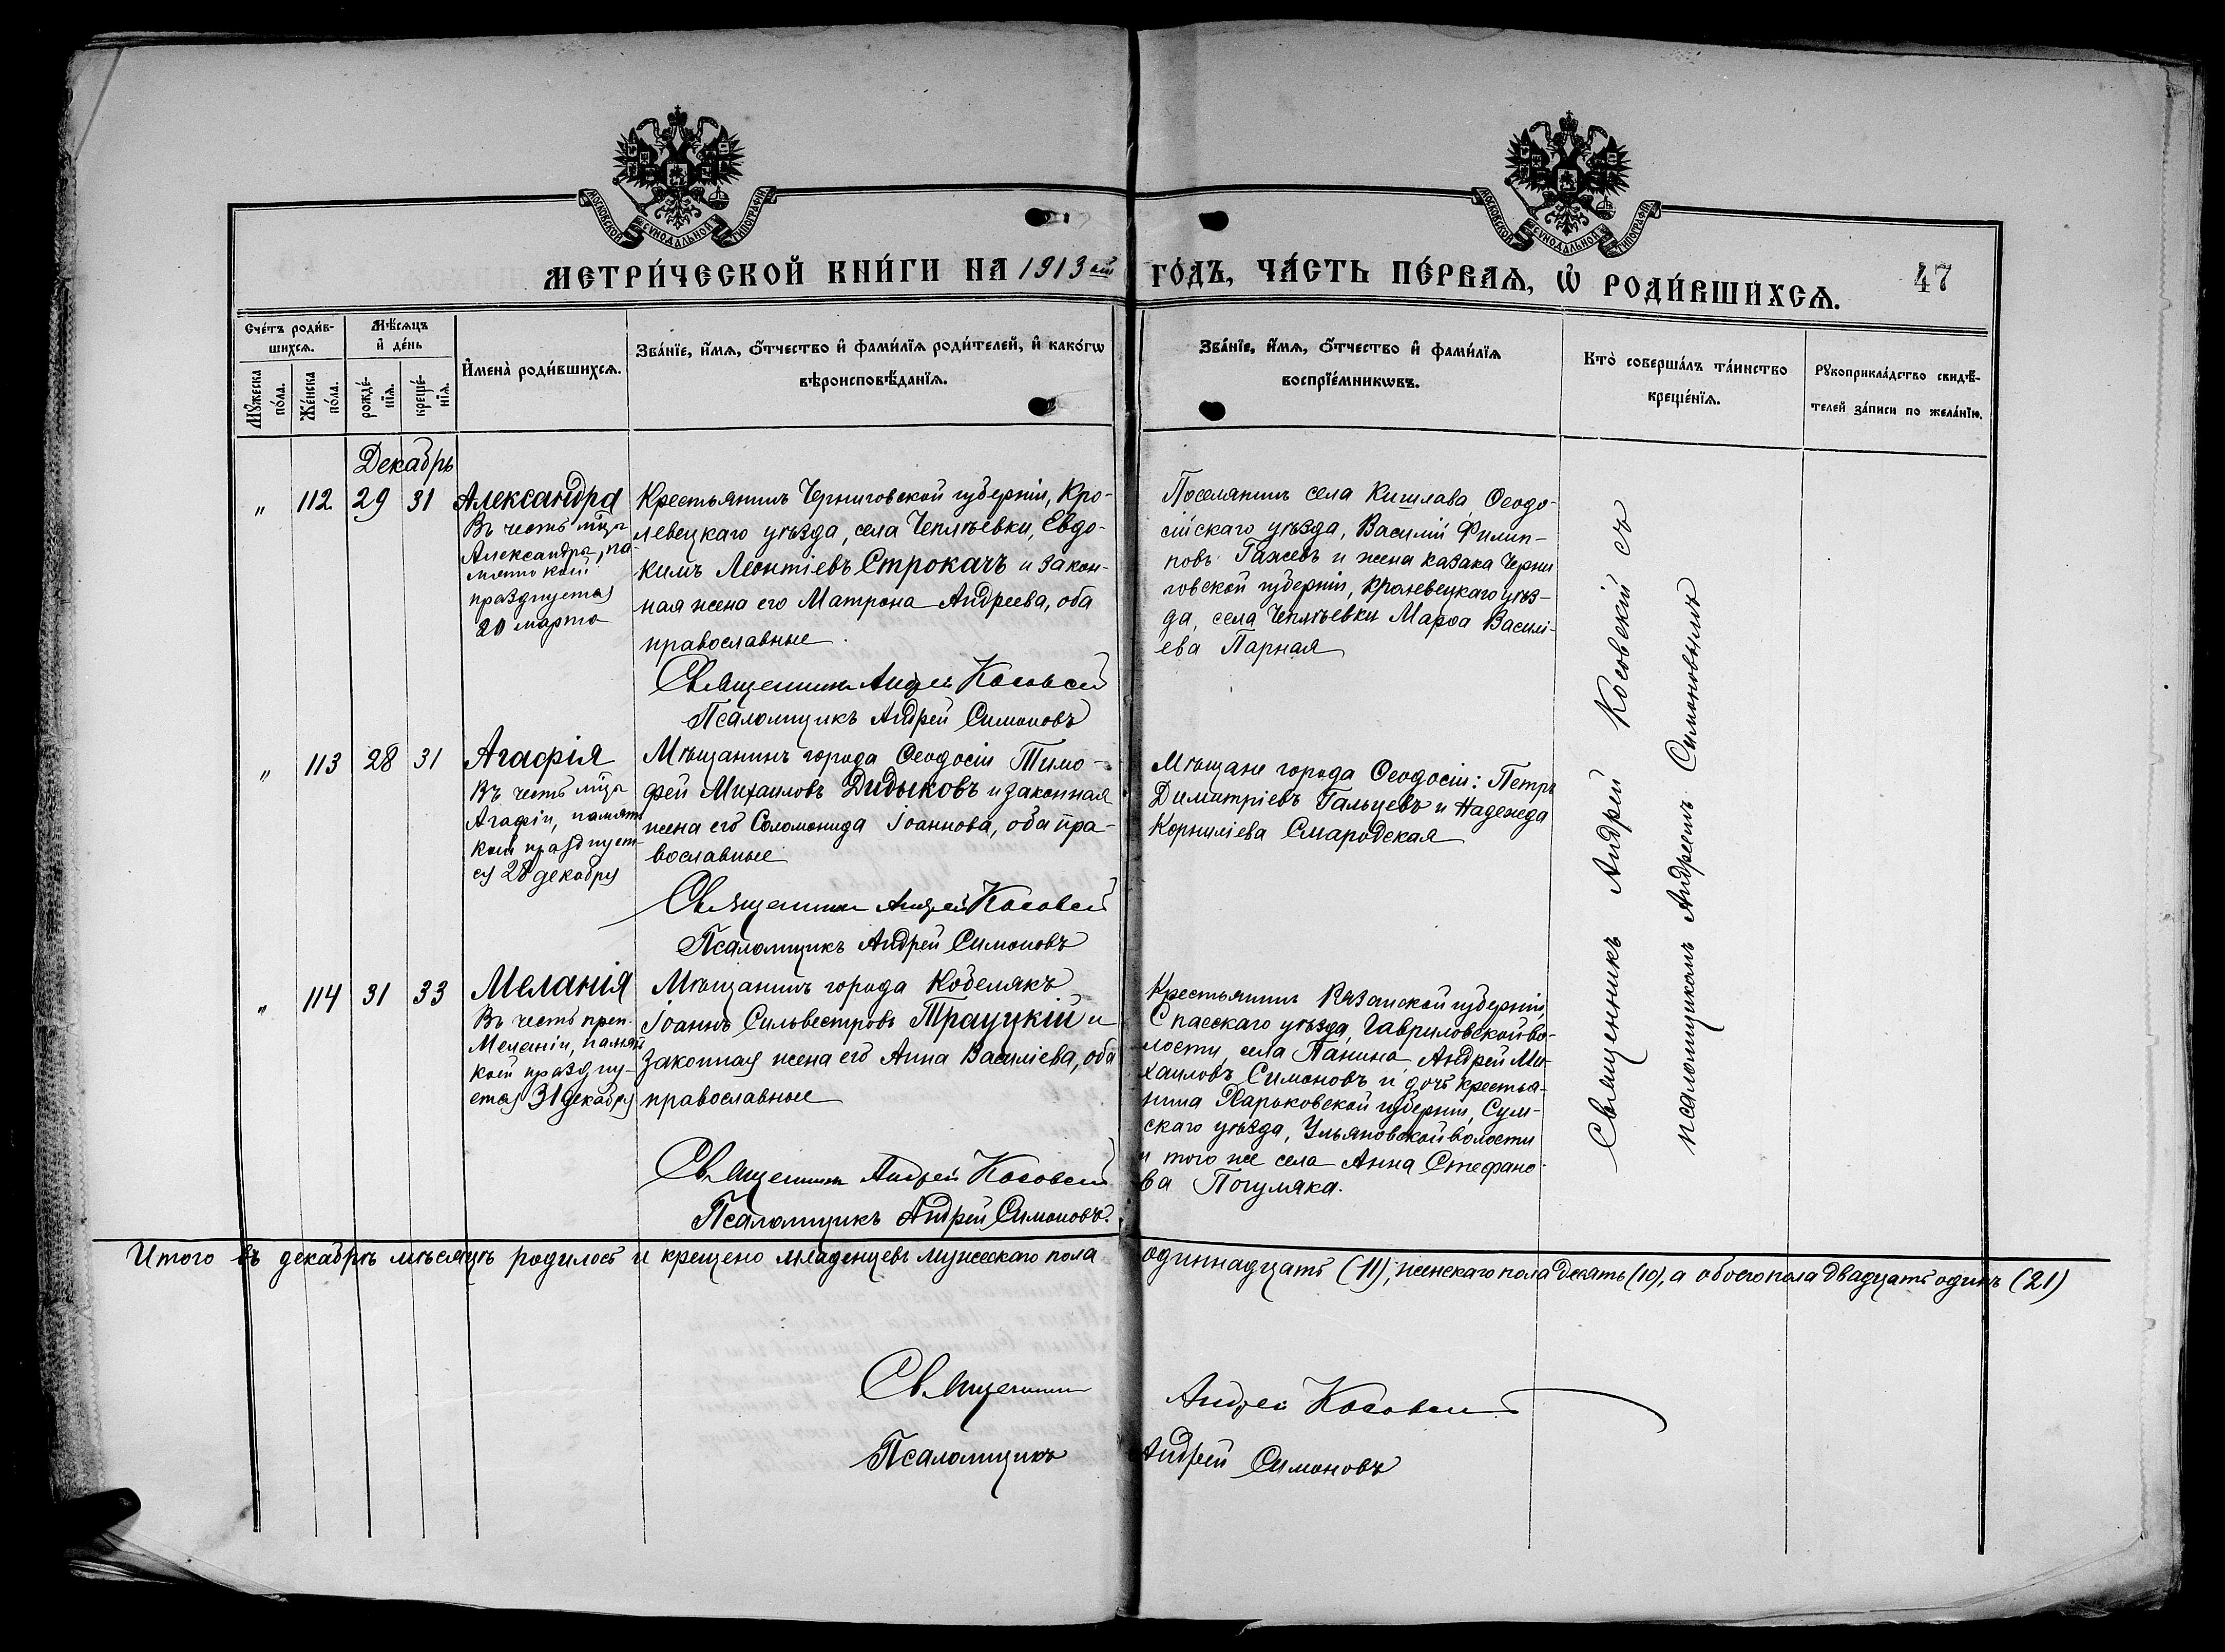 МОСКОВСКОЙ СѴНОДАЛЬНОЙ ТИПОГРАФІИ
МОСКОВСКОЙ СѴНОДАЛЬНОЙ ТИПОГРАФІИ
МЕТРИ́ЧЕСКОЙ КНИ́ГИ НА 1913 ый ГО́ДЪ, ЧА́СТЬ ПЕ́РВАѦ, Ѽ РОДИ́ВШИХСѦ.
47
Сче́тъ роди́в-
шихсѧ.
Мꙋ́жеска по́ла.
Же́нска по́ла.
Мѣ́сѧцъ
и҆ де́нь
рожде́-
нїѧ.
креще́-
нїѧ.
И҆мена̀ роди́вшихсѧ.
Зва́нїе, и҆́мѧ, ѻ҆́тчество и҆ фами́лїѧ роди́телей, и҆ како́гѡ
вѣроисповѣ́данїѧ.
Зва́нїе, и҆́мѧ, ѻ҆́тчество и҆ фами́лїѧ
воспрїе́мникѡвъ.
Кто̀ соверша́лъ та́инство
креще́нїѧ.
Рꙋкоприкла́дство свидѣ́-
телей за́писи по жела́нїю.
Декабрь
" 112. 29 31
Александра
Въ честь м҃цы
Александры, па-
мять коей
празднуется
20 марта
Крестьянинъ Черниговской губерніи, Кро-
левецкаго уѣзда, села Чеплѣевки, Евдо-
кимъ Леонтіевъ Строкачъ и закон-
ная жена его Матрона Андреева, оба
православные
Священникъ Андрей Косовскій
Псаломщикъ Андрей Симоновъ
Поселянинъ села Кишлава, Ѳеодо-
сійскаго уѣзда, Василій Филип-
повъ Гажевъ и жена казака Черни
говской губерніи, Кролевецкаго уѣз-
да, села Чеплѣевки Марѳа Васил-
ева Парная
" 113 28 31
Агафія
Въ честь м҃цы
Агафіи, память
коей празднует-
ся 28 декабря
Мѣщанинъ города Ѳеодосіи Тимо-
фей Михаиловъ Дидыковъ и законная
жена его Соломонида Іоаннова, оба пра-
вославные
Священникъ Андрей Косовскій
Псаломщикъ Андрей Симоновъ
Мѣщане города Ѳеодосіи: Петръ
Димитріевъ Гальцевъ и Надежда
Корниліева Смародская
" 114 31 33
Меланія
Въ честь преп.
Меланіи, память
коей праздну-
ется 31 декабря
Мѣщанинъ города Кобелякъ
Іоаннъ Сильвестровъ Трауцкій и
законная жена его Анна Василіева, оба
православные
Священникъ Андрей Косовскій
Псаломщикъ Андрей Симоновъ.
Крестьянинъ Рязанской губерніи,
Спасскаго уѣзда, Гавриловской во-
лости, села Панина, Андрей Ми-
хаиловъ Симоновъ и дочь крестья-
нина Харьковской губерніи, Сум-
скаго уѣзда, Ульяновской волости
и того же села Анна Стефано-
ва Погумяка.
Священникъ Андрей Косовскій съ
псаломщикомъ Андреемъ Симоновымъ
Итого въ декабрѣ мѣсяцѣ родилось и крещено младенцевъ мужескаго пола одиннадцать (11), женскаго пола десять (10), а обоего пола двадцать одинъ (21)
Священникъ Андрей Косовскій
Псаломщикъ Андрей Симоновъ